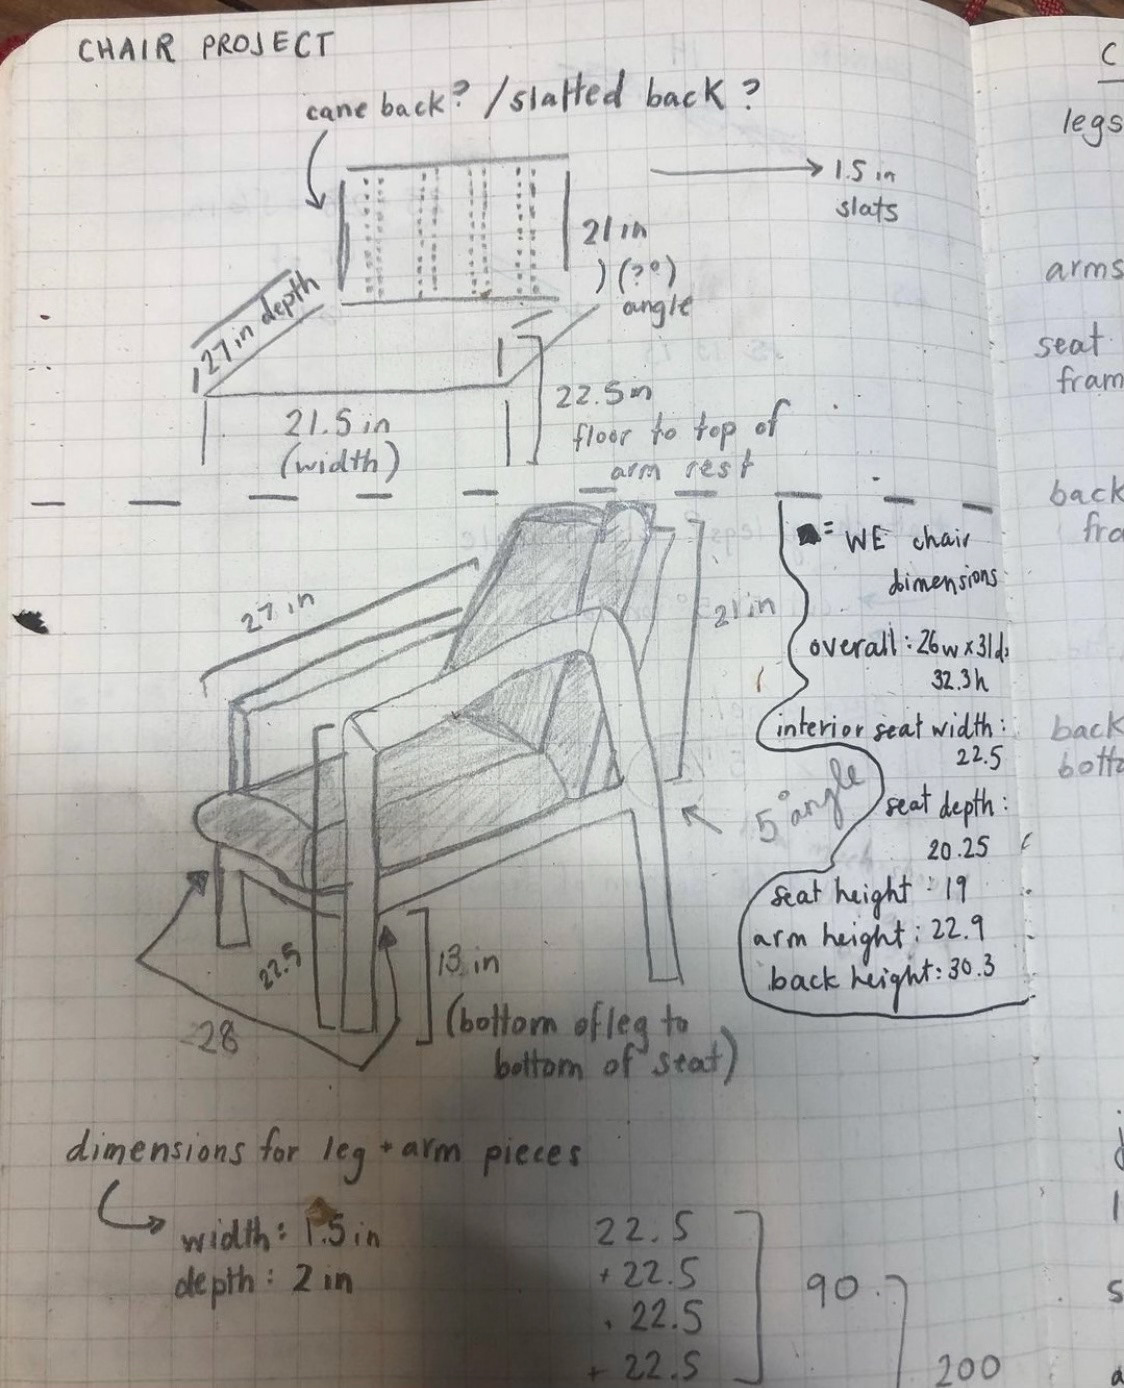 CHAIR PROJECT
cane back? / slatted back?
1.5 in
slats
21 in
) (?°)
angle
27 in depth
21.5 in
(width)
22.5 in
floor to top of
arm rest
= WE chair
dimensions
overall: 26w x 31d
32.3h
interior seat width:
22.5
seat depth:
20.25
seat height: 19
arm height: 22.9
back height: 30.3
27 in
21 in
5° angle
22.5
13 in
(bottom of leg to
bottom of seat)
28
dimensions for leg + arm pieces
width: 1.5 in
depth: 2 in
22.5
+ 22.5
. 22.5
+ 22.5
90
200
C
legs
arms
seat
fram
back
fra
back
botto